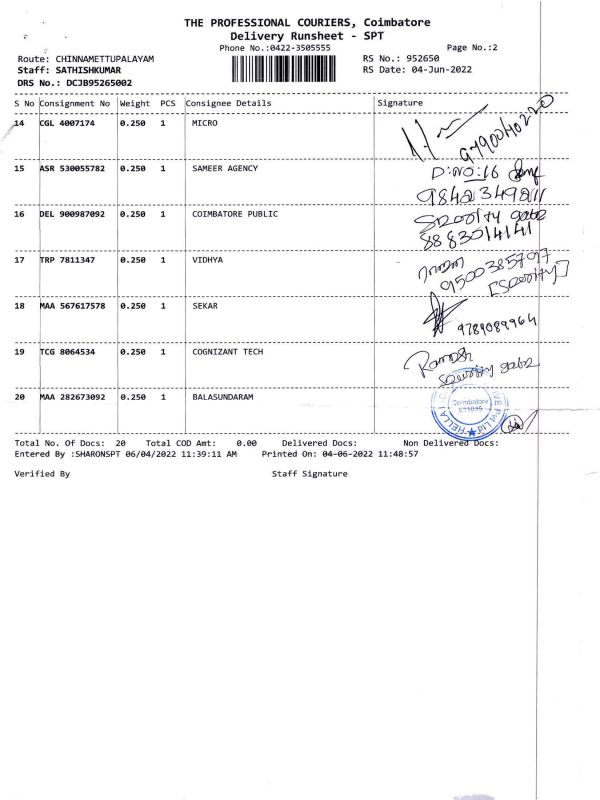 THE PROFESSIONAL COURIERS, Coimbatore
Delivery Runsheet - SPT
Phone No.:0422-3505555
Page No.:2
Route: CHINNAMETTUPALAYAM
RS No.: 952650
Staff: SATHISHKUMAR
RS Date: 04-Jun-2022
DRS No.: DCJB95265002
S No Consignment No Weight PCS Consignee Details Signature
14 CGL 4007174 0.250 1 MICRO
9790040220
15 ASR 530055782 0.250 1 SAMEER AGENCY
D:NO:16
9842349211
16 DEL 900987092 0.250 1 COIMBATORE PUBLIC
8883014141
17 TRP 7811347 0.250 1 VIDHYA
9500385797
18 MAA 567617578 0.250 1 SEKAR
9789089964
19 TCG 8064534 0.250 1 COGNIZANT TECH
Ramesh
20 MAA 282673092 0.250 1 BALASUNDARAM
Coimbatore
Total No. Of Docs: 20 Total COD Amt: 0.00 Delivered Docs: Non Delivered Docs:
Entered By :SHARONSPT 06/04/2022 11:39:11 AM Printed On: 04-06-2022 11:48:57
Verified By Staff Signature